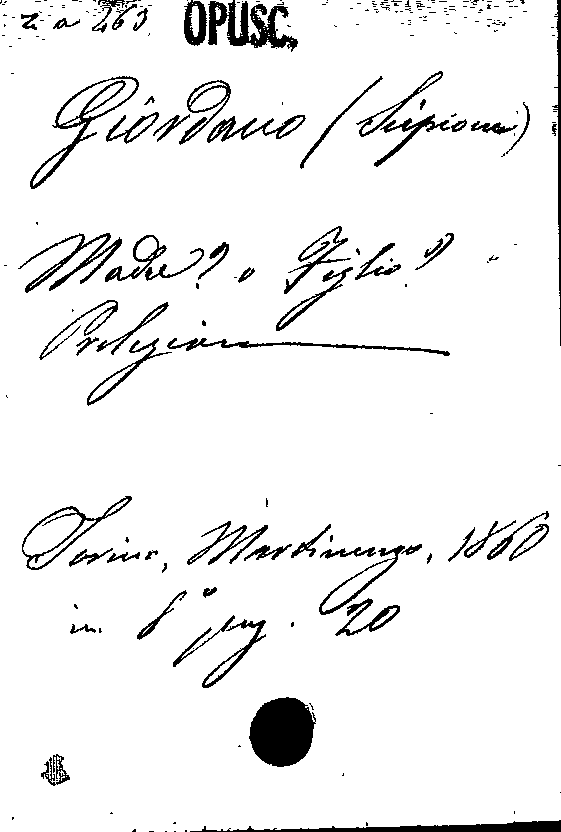 z a 263 OPUSC.
Giordano (Scipione)
Madre? o Figlio?
Prolezione
Torino, Martinengo, 1860
in 8° pag. 20